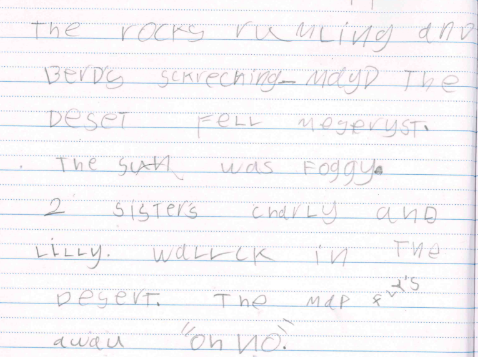 The rocks rumLing and
BerDs sckreching mayD The
Deset FeLL megeryst.
The sun was Foggy.
2 sisters charLy and
LiLLy. waLLck in The
Desert. The map
away "oh no."